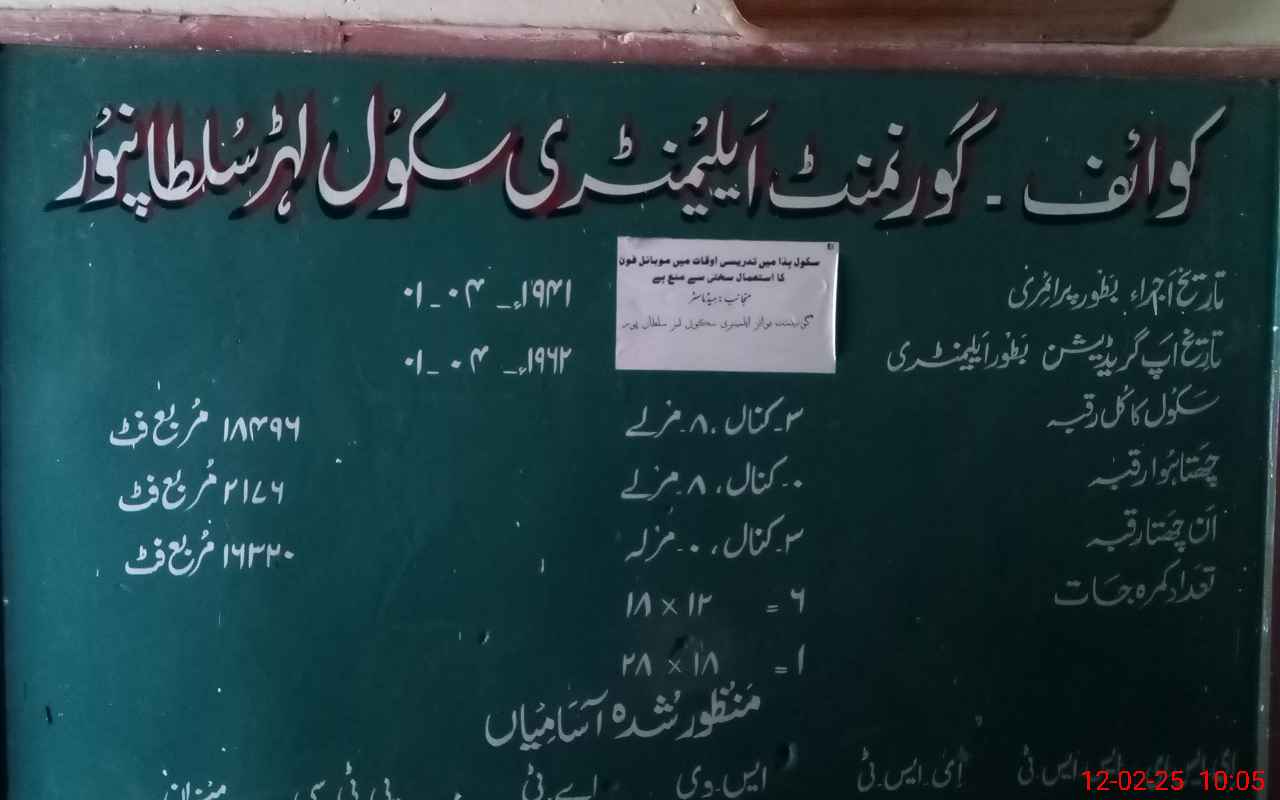 کوائف ۔ گورنمنٹ ایلیمنٹری سکول لہڑ سلطانپور
سکول ہذا میں تدریسی اوقات میں موبائل فون
کا استعمال سختی سے منع ہے
منجانب : ہیڈماسٹر
گورنمنٹ بوائز ایلیمنٹری سکول لہڑ سلطان پور
تاریخ اجراء بطور پرائمری ۰۱۔۰۴۔۱۹۴۱ء
تاریخ اپ گریڈیشن بطور ایلیمنٹری ۰۱۔۰۴۔۱۹۶۲ء
سکول کا کل رقبہ ۳۔کنال، ۸۔مرلے ۱۸۴۹۶ مربع فٹ
چھتا ہوا رقبہ ۰۔کنال، ۸۔مرلے ۲۱۷۶ مربع فٹ
ان چھتا رقبہ ۳۔کنال، ۰۔مرلہ ۱۶۳۲۰ مربع فٹ
تعداد کمرہ جات ۶ = ۱۲ × ۱۸
۱ = ۱۸ × ۲۸
منظور شدہ آسامیاں
ایس ایس ٹی ای۔ایس۔ٹی ایس۔وی اے۔ٹی پی ٹی سی میزان
12-02-25 10:05